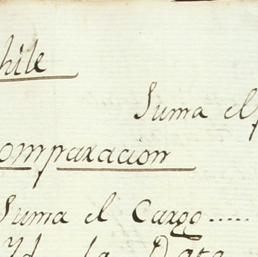 hile
Suma el
omparacion
Suma el Cargo.....
Yd. la Data